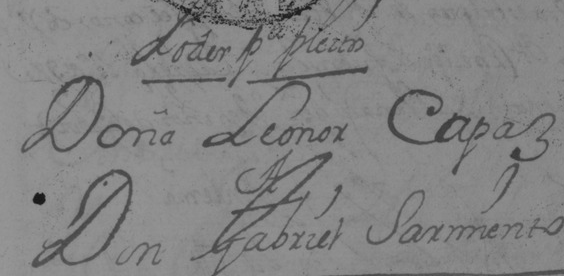 Poder pª pleitos
Doña Leonor Capaz
A
Don Gabriel Sarmiento